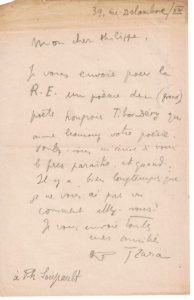 39, rue Delambre/XIV
Mon cher Philippe,
Je vous envoie pour la
R.E. un poème du (grand)
poète hongrois Tibor Déry qui
aime beaucoup votre poésie.
Voulez-vous m'écrire si vous
le fres paraître, et quand.
Il y a bien longtemps que
je ne vous ai pas vu
comment allez-vous?
Je vous envoie toutes
mes amitiés
Tzara
à Ph Soupault